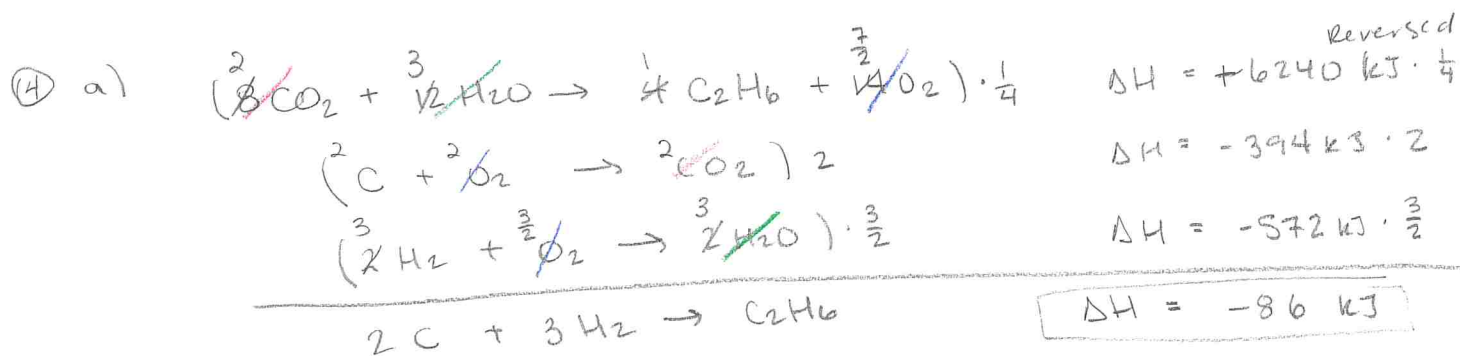 Reversed
④ a) (2 8CO₂ + 3 12 H₂O → 1 4 C₂H₆ + 7/2 14O₂) · 1/4 ΔH = +6240 kJ · 1/4
(2 C + 2 O₂ → 2 CO₂) 2 ΔH = -394 kJ · 2
(3 2 H₂ + 3/2 O₂ → 3 2 H₂O) · 3/2 ΔH = -572 kJ · 3/2
2 C + 3 H₂ → C₂H₆ ΔH = -86 kJ